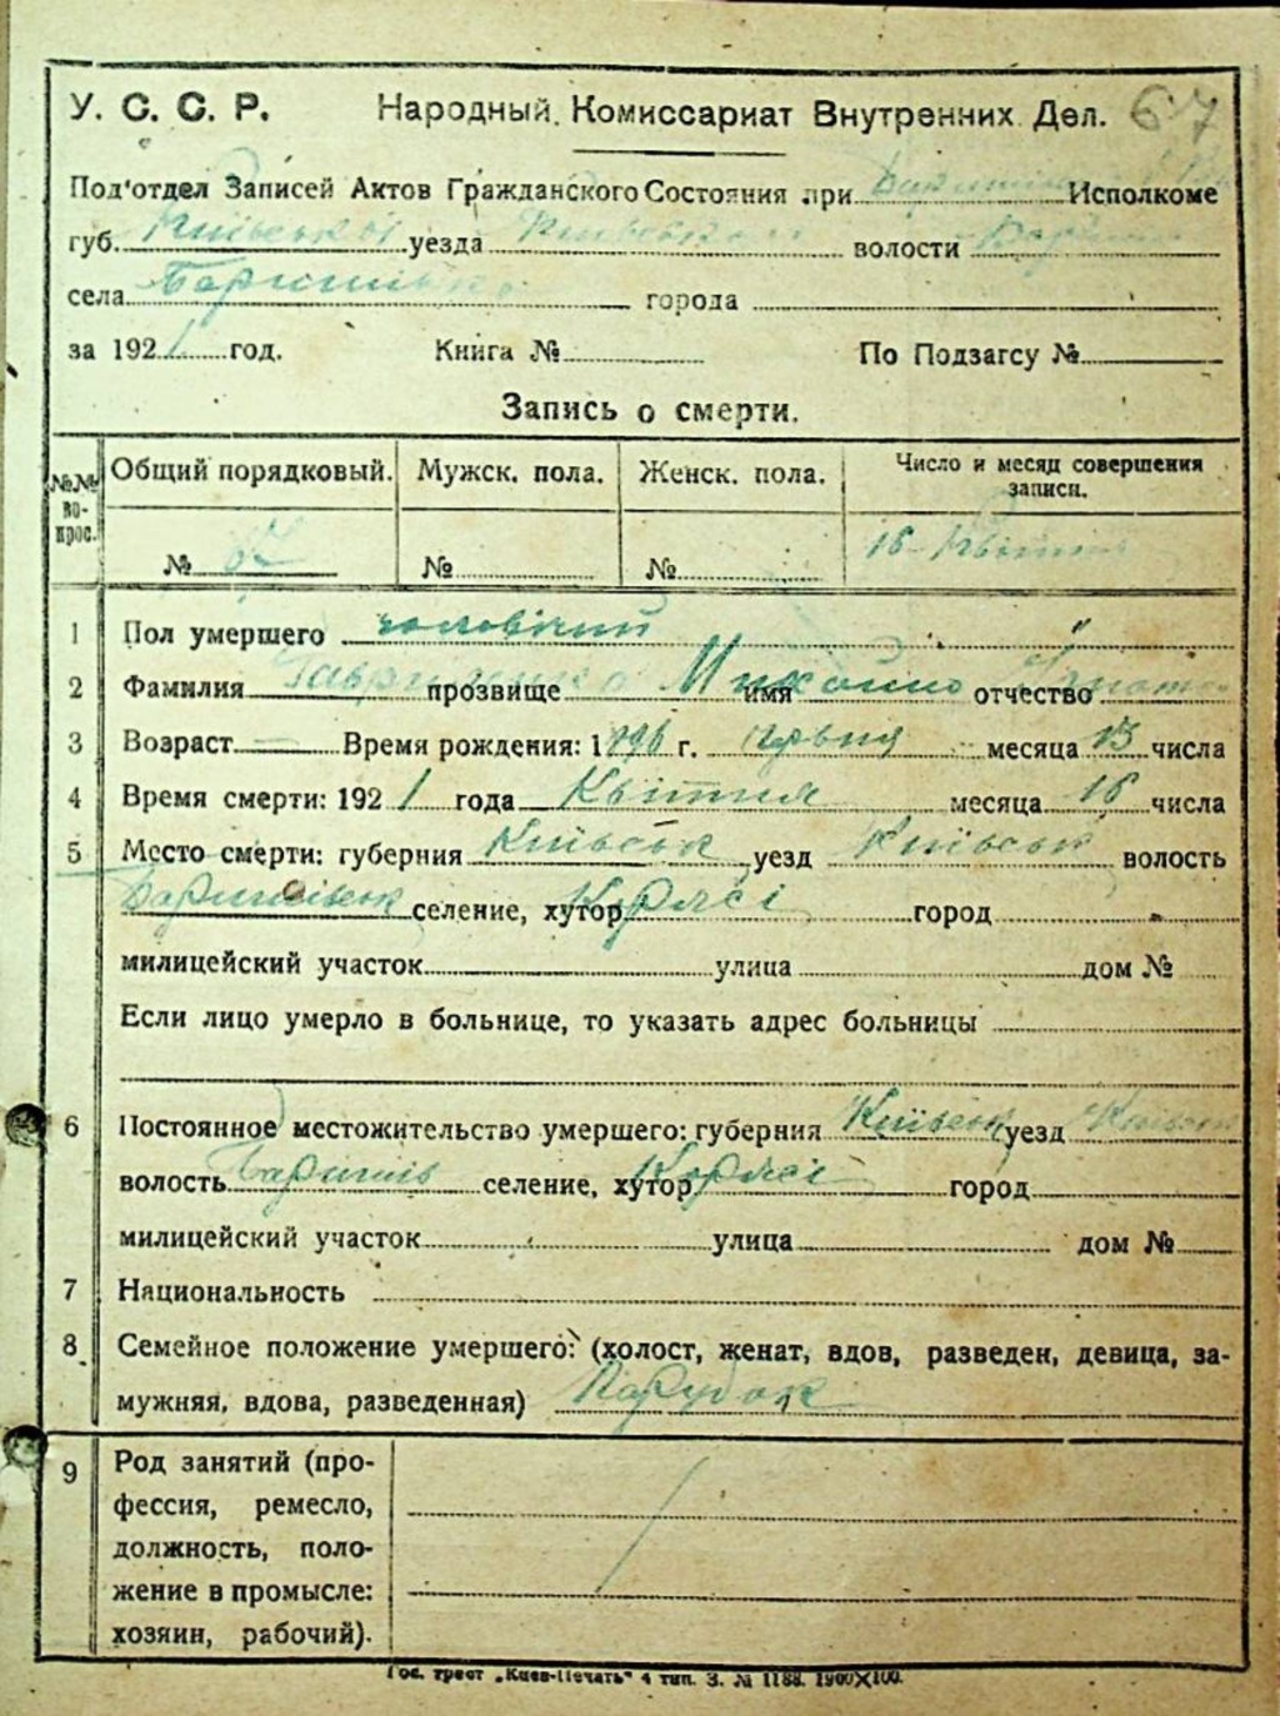 67
У. С. С. Р. Народный Комиссариат Внутренних Дел.
Под'отдел Записей Актов Гражданского Состояния при Исполкоме
губ. Київської уезда Київської волости
села города
за 1921 год. Книга № По Подзагсу №
Запись о смерти.
№№ вопрос. Общий порядковый. Мужск. пола. Женск. пола. Число и месяц совершения
записи.
№ 67 № № 16 Квітня
1 Пол умершего чоловічий
2 Фамилия прозвище имя Микойло отчество
3 Возраст — Время рождения: 1896 г. червня месяца 13 числа
4 Время смерти: 1921 года Квітня месяца 16 числа
5 Место смерти: губерния Київськ уезд Київськ волость
Баришівськ селение, хутор город
милицейский участок улица дом №
Если лицо умерло в больнице, то указать адрес больницы
6 Постоянное местожительство умершего: губерния Київськ уезд Київськ
волость Баришів селение, хутор город
милицейский участок улица дом №
7 Национальность
8 Семейное положение умершего: (холост, женат, вдов, разведен, девица, за-
мужняя, вдова, разведенная) Парубок
9 Род занятий (про-
фессия, ремесло,
должность, поло-
жение в промысле:
хозяин, рабочий).
Гос. трест „Киев-Печать" 4 тип. З. № 1188. 1900✕100.